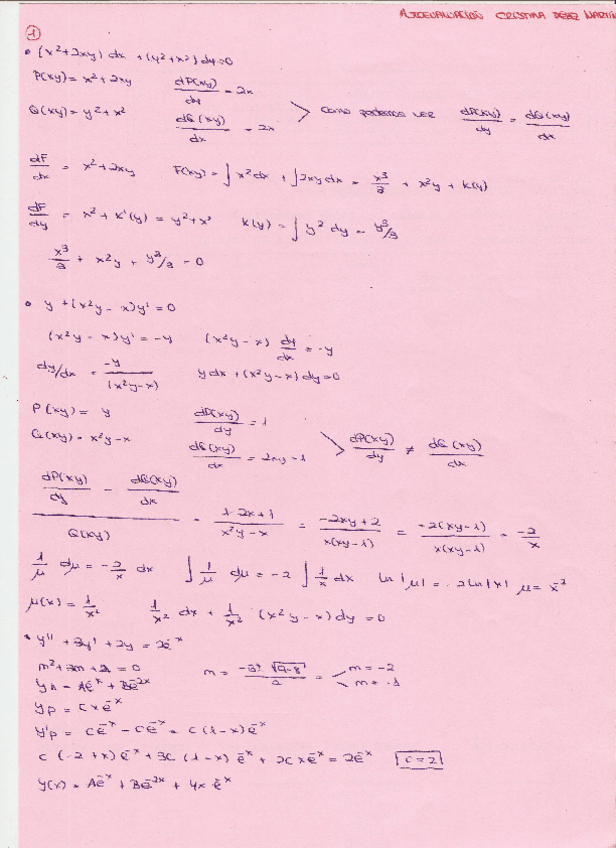 AUTOEVALUACIÓN CRISTINA PÉREZ MARTÍN
1
• (x²+2xy) dx + (y²+x²) dy=0
P(xy) = x²+2xy dP(xy)/dy = 2x
Q(xy) = y²+x² dQ(xy)/dx = 2x > Como podemos ver dP(xy)/dy = dQ(xy)/dx
dF/dx = x²+2xy F(xy) = ∫x²dx + ∫2xy dx = x³/3 + x²y + K(y)
dF/dy = x² + K'(y) = y²+x² K(y) = ∫ y² dy = y³/3
x³/3 + x²y + y³/3 = 0
• y + (x²y - x)y' = 0
(x²y - x)y' = -y (x²y - x) dy/dx = -y
dy/dx = -y/(x²y-x) y dx + (x²y-x) dy=0
P(xy) = y dP(xy)/dy = 1
Q(xy) = x²y-x dQ(xy)/dx = 2xy-1 > dP(xy)/dy ≠ dQ(xy)/dx
(dP(xy)/dy - dQ(xy)/dx)/Q(xy) = (1-2x+1)/(x²y-x) = (-2xy+2)/(x(xy-1)) = -2(xy-1)/(x(xy-1)) = -2/x
1/μ dμ = -2/x dx ∫ 1/μ dμ = -2 ∫ 1/x dx ln|μ| = -2ln|x| μ = x⁻²
μ(x) = 1/x² 1/x² dx + 1/x² (x²y-x)dy=0
• y'' + 3y' + 2y = 2e⁻ˣ
m²+3m+2=0 m = (-3± √(9-8))/2 = < m=-2 m=-1
yh = Ae⁻ˣ + Be⁻²ˣ
yp = Cxe⁻ˣ
y'p = Ce⁻ˣ - Ce⁻ˣ = C(1-x)e⁻ˣ
C(-2+x)e⁻ˣ + 3C(1-x)e⁻ˣ + 2Cxe⁻ˣ = 2e⁻ˣ C=2
y(x) = Ae⁻ˣ + Be⁻²ˣ + 4xe⁻ˣ